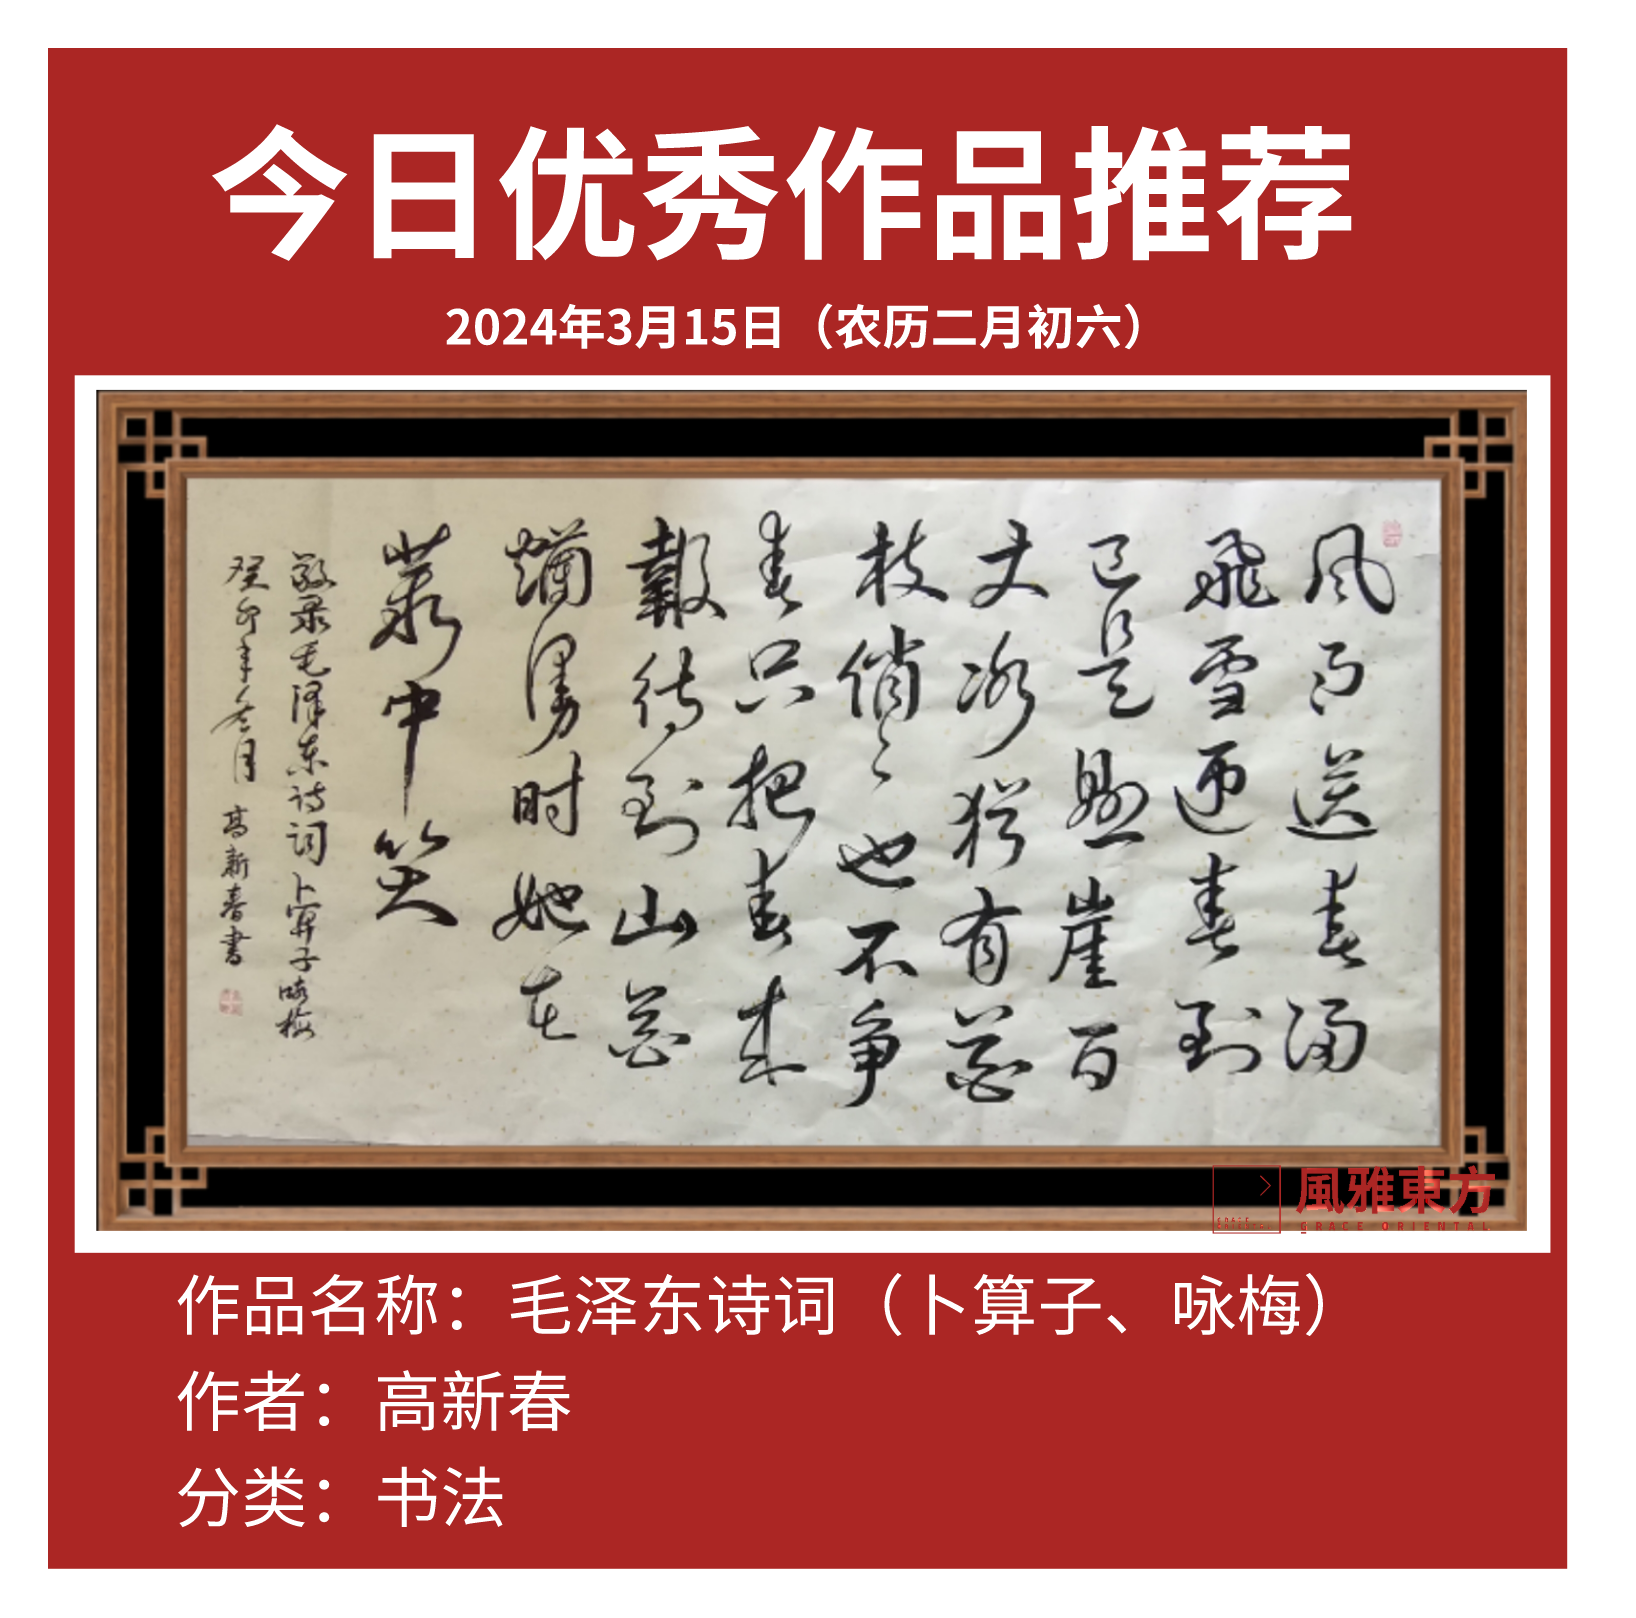 今日优秀作品推荐
2024年3月15日（农历二月初六）
风雨送春归
飛雪迎春到
已是悬崖百
丈冰猶有花
枝俏々也不争
春只把春来
報待到山花
爛漫时她在
藂中笑
敬录毛泽东诗词卜算子咏梅
癸卯年冬月 高新春書
風雅東方
GRACE ORIENTAL
作品名称：毛泽东诗词（卜算子、咏梅）
作者：高新春
分类：书法